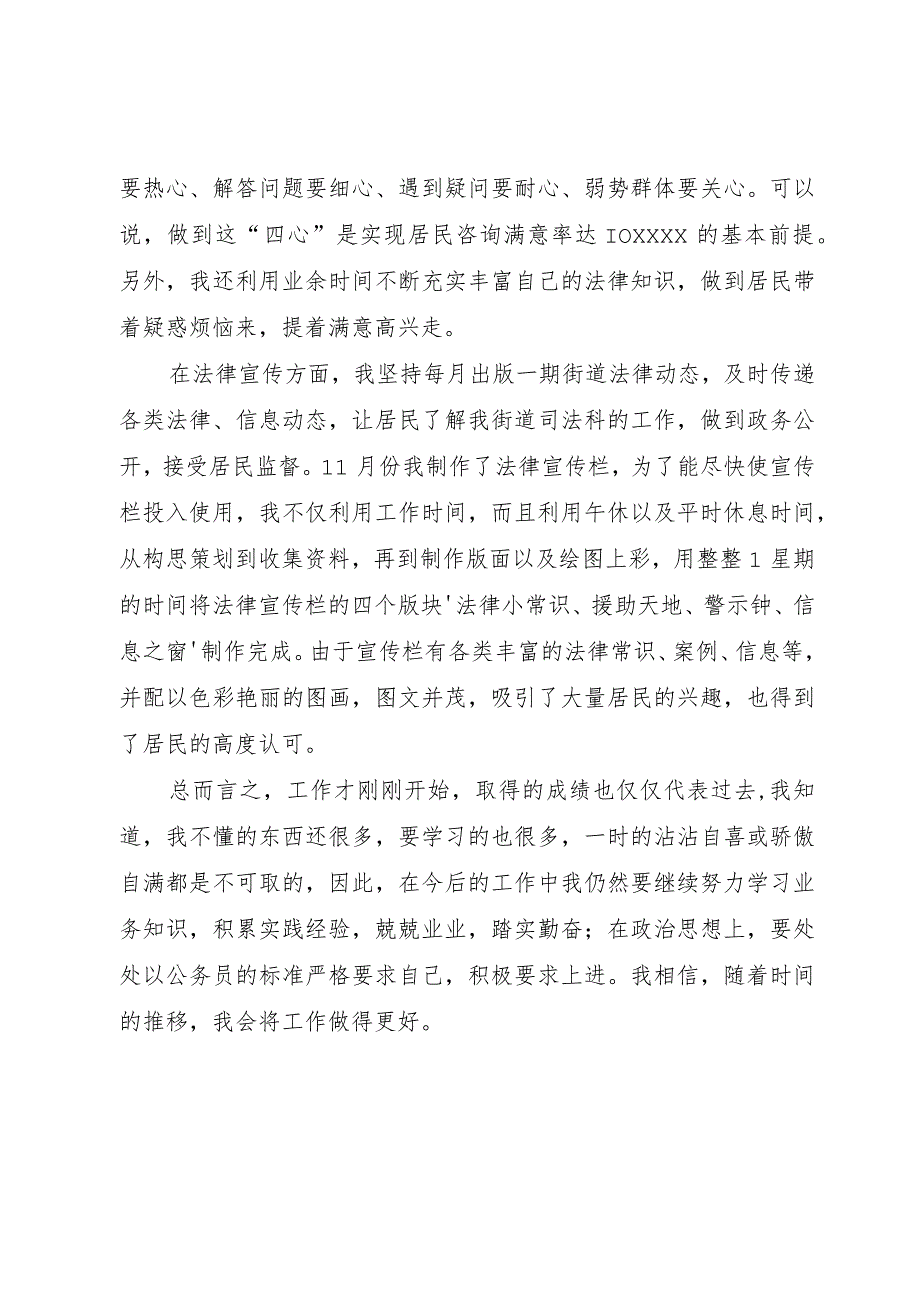 要热心、解答问题要细心、遇到疑问要耐心、弱势群体要关心。可以
说，做到这“四心”是实现居民咨询满意率达 IOXXXX 的基本前提。
另外，我还利用业余时间不断充实丰富自己的法律知识，做到居民带
着疑惑烦恼来，提着满意高兴走。
在法律宣传方面，我坚持每月出版一期街道法律动态，及时传递
各类法律、信息动态，让居民了解我街道司法科的工作，做到政务公
开，接受居民监督。11 月份我制作了法律宣传栏，为了能尽快使宣传
栏投入使用，我不仅利用工作时间，而且利用午休以及平时休息时间，
从构思策划到收集资料，再到制作版面以及绘图上彩，用整整 1 星期
的时间将法律宣传栏的四个版块'法律小常识、援助天地、警示钟、信
息之窗'制作完成。由于宣传栏有各类丰富的法律常识、案例、信息等，
并配以色彩艳丽的图画，图文并茂，吸引了大量居民的兴趣，也得到
了居民的高度认可。
总而言之，工作才刚刚开始，取得的成绩也仅仅代表过去,我知
道，我不懂的东西还很多，要学习的也很多，一时的沾沾自喜或骄傲
自满都是不可取的，因此，在今后的工作中我仍然要继续努力学习业
务知识，积累实践经验，兢兢业业，踏实勤奋；在政治思想上，要处
处以公务员的标准严格要求自己，积极要求上进。我相信，随着时间
的推移，我会将工作做得更好。